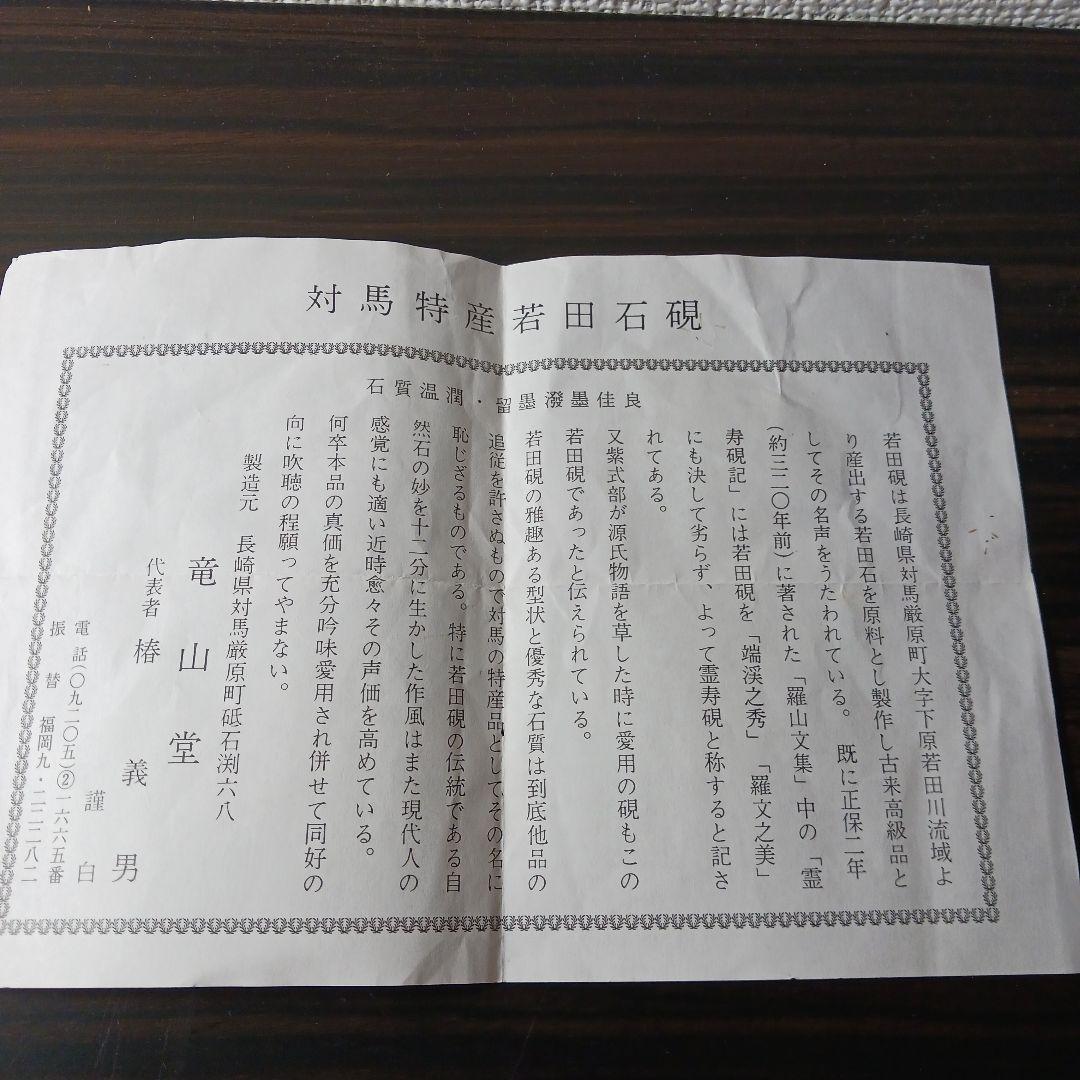 対馬特産若田石硯
石質温潤・留墨溌墨佳良
若田硯は長崎県対馬厳原町大字下原若田川流域よ
り産出する若田石を原料とし製作し古来高級品と
してその名声をうたわれている。 既に正保二年
(約三二〇年前)に著された「羅山文集」中の「霊
寿硯記」には若田硯を「端渓之秀」「羅文之美」
にも決して劣らず、よって霊寿硯と称すると記さ
れてある。
又紫式部が源氏物語を草した時に愛用の硯もこの
若田硯であったと伝えられている。
若田硯の雅趣ある型状と優秀な石質は到底他品の
追従を許さぬもので対馬の特産品としてその名に
恥じざるものである。特に若田硯の伝統である自
然石の妙を十二分に生かした作風はまた現代人の
感覚にも適い近時愈々その声価を高めている。
何卒本品の真価を充分吟味愛用され併せて同好の
向に吹聴の程願ってやまない。
製造元 長崎県対馬厳原町砥石渕六八
竜山堂
代表者 椿義男
謹白
電話(〇九二〇五)②一六六五番
振替 福岡九・二二二八二